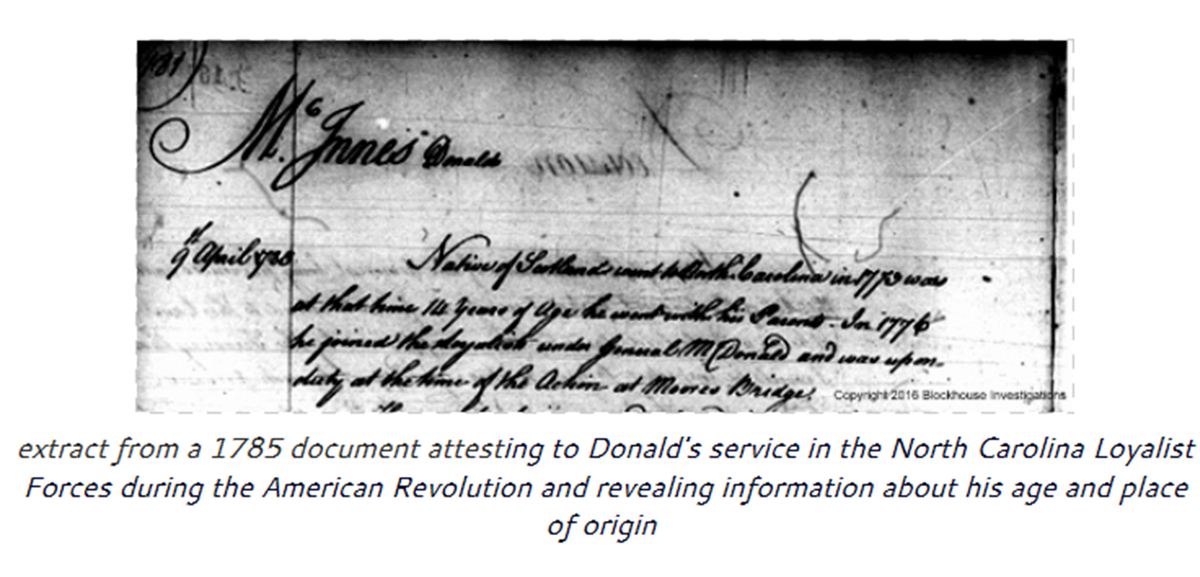 Mc. Innes Donald
9th April 1785
Native of Scotland went to North Carolina in 1773 was
at that time 14 Years of Age he went with his Parents. In 1776
he joined the Loyalists under General McDonald and was upon
duty at the time of the Action at Moores Bridge.
Copyright 2016 Blockhouse Investigations
extract from a 1785 document attesting to Donald's service in the North Carolina Loyalist
Forces during the American Revolution and revealing information about his age and place
of origin